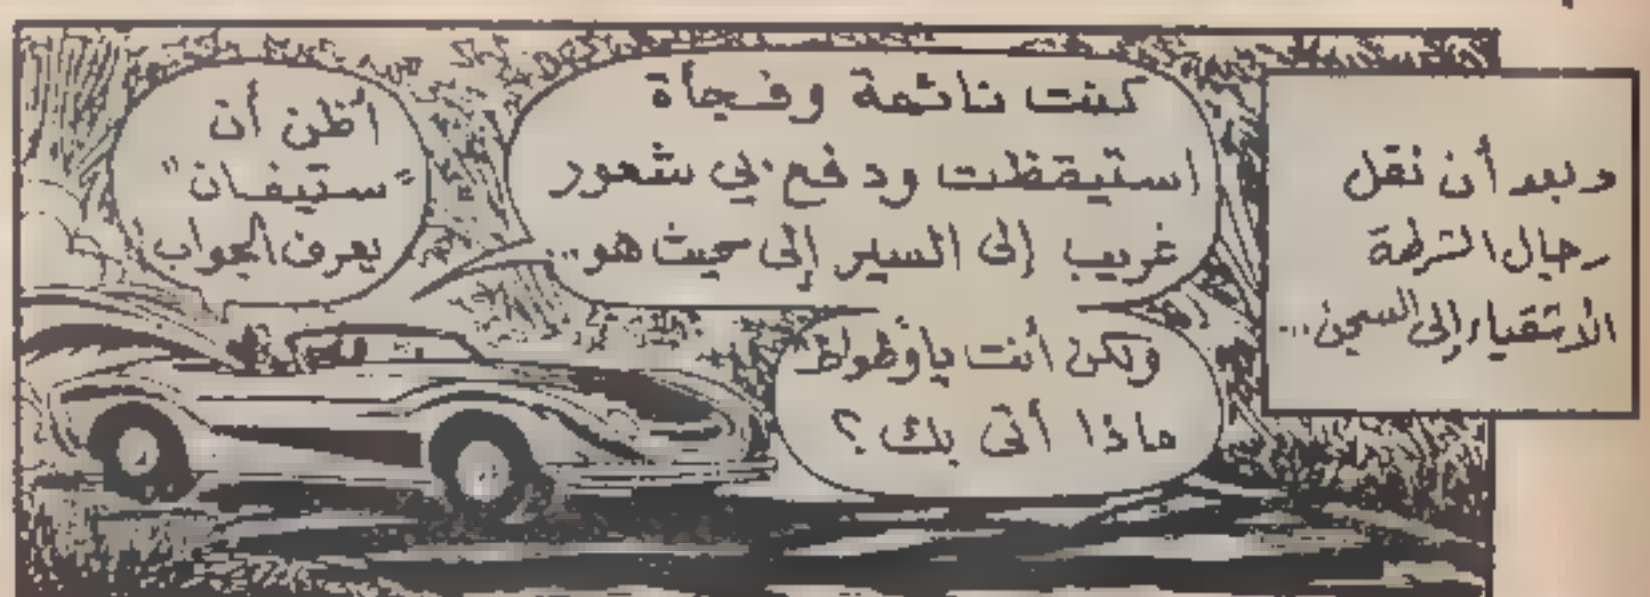 وبعد أن نقل
رجال الشرطة
الأشقياء إلى السجن...
كنت نائمة وفجأة
استيقظت ودفع بي شعور
غريب إلى السير إلى حيث هو...
ولكن أنت ياوطواط
ماذا أتى بك؟
أظن أن
"ستيفان"
يعرف الجواب